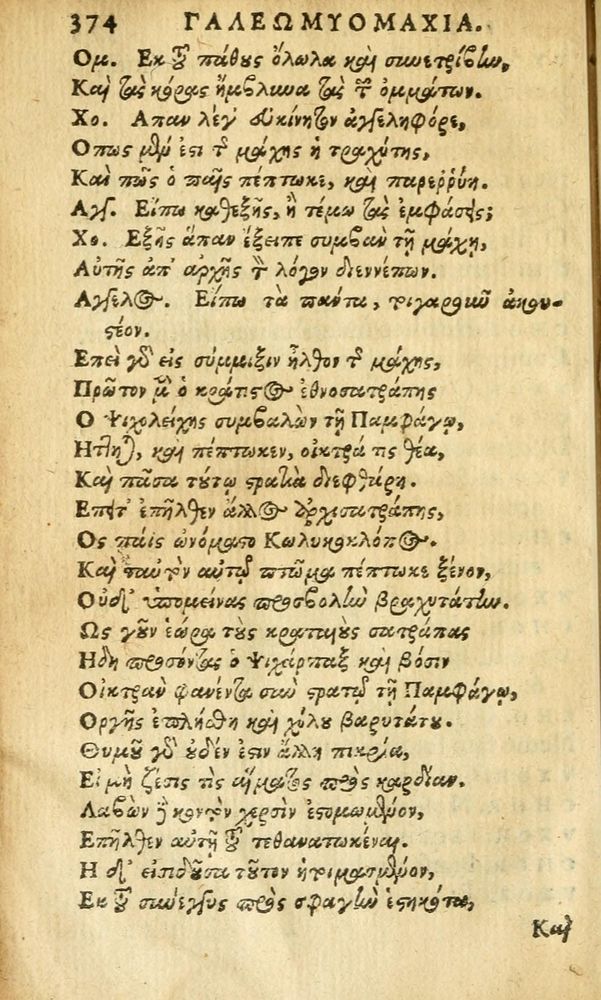 374 ΓΑΛΕΩΜΥΟΜΑΧΙΑ.
Ομ. Εκ τοῦ πάθους ὄλωλα καὶ συνετρίβην,
Καὶ τὰς κόρας ἤμβλυνα τὰς τῶν ὀμμάτων.
Χο. Απαν λέγ' εὐκίνητον ἀγγεληφόρε,
Οπως μὲν ἐστι τῆς μάχης ἡ τραχύτης,
Καὶ πῶς ὁ παῖς πέπτωκε, καὶ παρερρύη.
Αγγ. Είπω καθεξῆς, ἢ τέμω τὰς ἐμφάσεις;
Χο. Εξῆς ἅπαν ἔξειπε συμβὰν τῇ μάχῃ,
Αὐτῆς ἀπ' ἀρχῆς τὸν λόγον διεννέπων.
Αγγελος. Είπω τὰ πάντα, σιγαρκικοῦ ἀκου-
στέον.
Επεὶ γὸ εἰς σύμμιξιν ἦλθον τῆς μάχης,
Πρῶτον μὲν ὁ κράτιστος ἐθνοσατράπης
Ο Ψιχολείχης συμβαλὼν τῇ Παμφάγῳ,
Ητλη, καὶ πέπτωκεν, οἰκτρά τις θέα,
Καὶ πᾶσα τούτῳ στρατιὰ διεφθάρη.
Επειτ' ἐπῆλθεν ἄλλος ἀρχισατράπης,
Ος παῖς ὠνόμαστο Κωλυκοκλόπος.
Καὶ ταυτὸν αὐτῷ πτῶμα πέπτωκε ξένον,
Οὐδ' ὑπομείνας προσβολὴν βραχυτάτην.
Ως γοῦν ἑώρα τοὺς κραταιοὺς σατράπας
Ηδη πεσόντας ὁ Ψιχάρπαξ καὶ βόσιν
Οἰκτρὰν φανέντα σὺν στρατῷ τῇ Παμφάγῳ,
Οργῆς ἐπλήσθη καὶ χόλου βαρυτάτου.
Θυμοῦ γὸ οὐδέν ἐστιν ἄλλη πικρία,
Εἰ μὴ ζέσις τις αἵματος πρὸς καρδίαν.
Λαβὼν δὲ κοντὸν χερσὶν ἐστομωμένον,
Επῆλθεν αὐτῇ τοῦ τεθανατωκέναι.
Η δ' εἰσιδοῦσα τοῦτον ἠτιμασμένον,
Εκ τοῦ συνέγγυς πρὸς σφαγὴν ἑστηκότα,
Καὶ